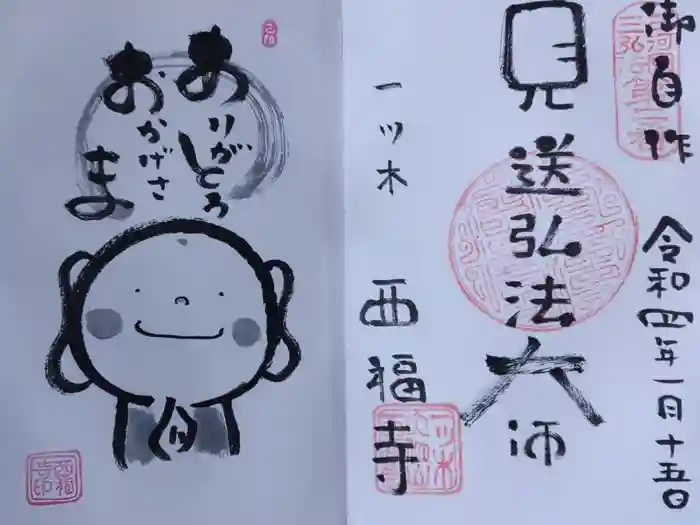 御自作 令和四年一月十五日
見送弘法大師
一ツ木 西福寺
ありがとう
おかげさま